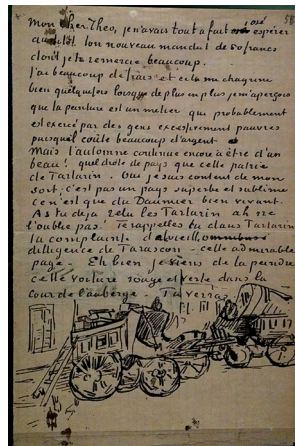 Mon cher Theo, je n'avais tout à fait osé espérer
aussitôt ton nouveau mandat de 50 francs
dont je te remercie beaucoup.
J'ai beaucoup de frais et cela me chagrine
bien quelquefois lorsque de plus en plus je m'aperçois
que la peinture est un metier qui probablement
est exercé par des gens excessivement pauvres
puisqu'il coûte beaucoup d'argent
Mais l'automne continue encore à être d'un
beau! quel drôle de pays que cette patrie
de Tartarin. Oui je suis content de mon
sort, c'est pas un pays superbe et sublime
ce n'est que du Daumier bien vivant.
As tu deja relu les Tartarin ah ne
l'oublie pas! Te rappelles tu dans Tartarin
la complainte de la vieille
diligence de Tarascon - cette admirable
page. Eh bien je viens de la peindre
cette voiture rouge et verte dans la
cour de l'auberge. Tu verras